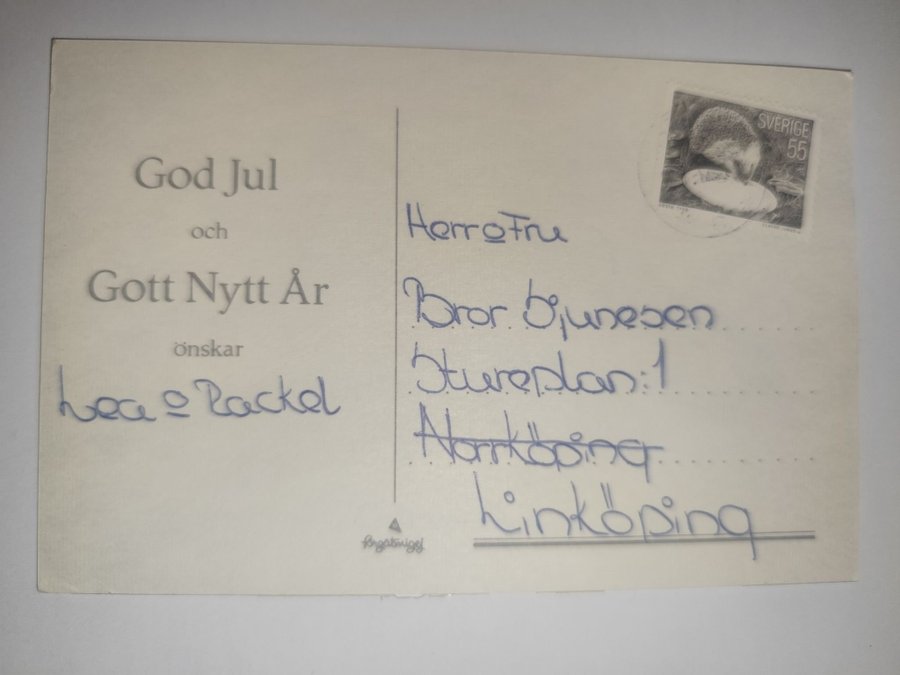 God Jul
och
Gott Nytt År
önskar
Lea o Rackel
SVERIGE
55
Herr o Fru
Bror Djunesen
Stureplan:1
Norrköping
Linköping